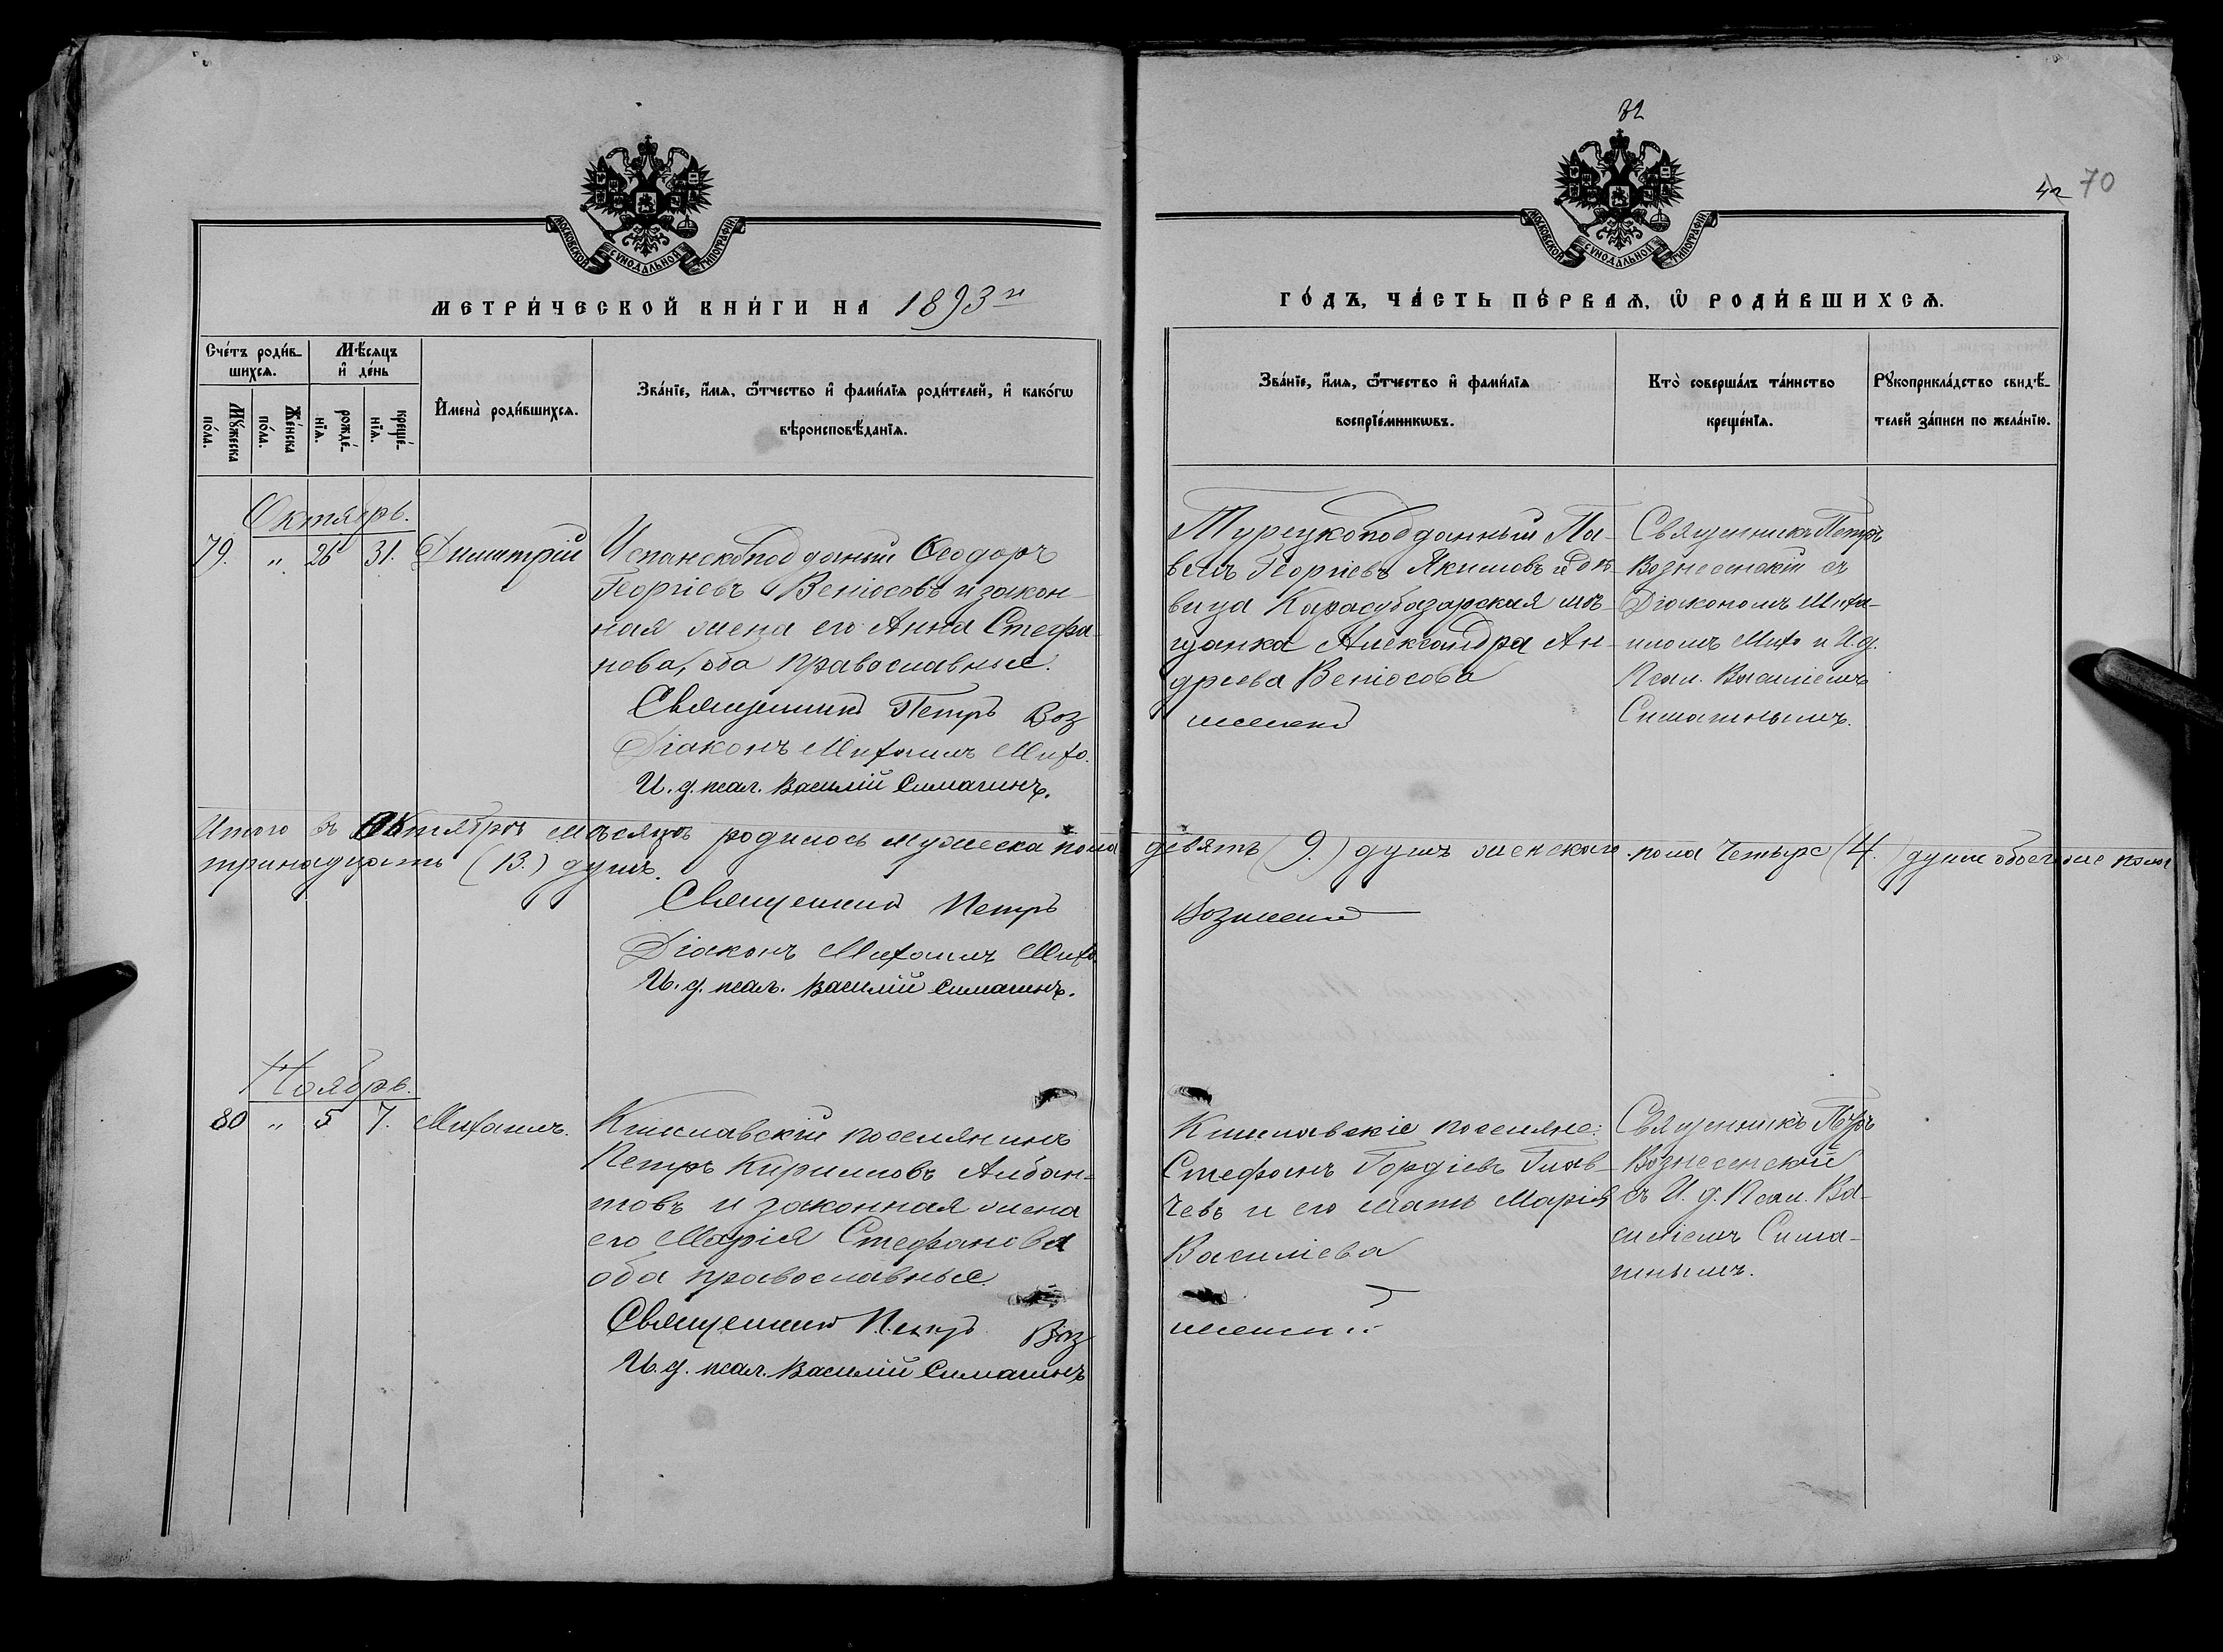 32
42 70
МОСКОВСКОЙ СѴНОДАЛЬНОЙ ТИПОГРАФІИ
МОСКОВСКОЙ СѴНОДАЛЬНОЙ ТИПОГРАФІИ
МЕТРИ́ЧЕСКОЙ КНИ́ГИ НА 1893 й
ГО́ДЪ, ЧА́СТЬ ПЕ́РВАѦ, Ѿ РОДИ́ВШИХСѦ.
Сче́тъ роди́в-
шихсѧ.
Мѣ́сѧцъ
и҆ де́нь
Мꙋ́жеска
по́ла.
Же́нска
по́ла.
рожде́-
нїѧ.
креще́-
нїѧ.
И҆мена̀ роди́вшихсѧ.
Зва́нїе, и҆́мѧ, ѻ҆́тчество и҆ фами́лїѧ роди́телей, и҆ како́гѡ
вѣроисповѣ́данїѧ.
Зва́нїе, и҆́мѧ, ѻ҆́тчество и҆ фами́лїѧ
воспрїе́мникѡвъ.
Кто̀ соверша́лъ та́инство
креще́нїѧ.
Рꙋкоприкла́дство свидѣ́-
телей за́писи по жела́нїю.
Октябрь.
79. " 26 31. Димитрій
Испанскоподданный Ѳеодоръ
Георгіевъ Веніосовъ и закон-
ная жена его Анна Стефа-
нова, оба православные.
Священникъ Петръ Воз
Діаконъ Михаилъ Михо.
И. д. псал. Василій Симагинъ.
Турецкоподданный Па-
велъ Георгіевъ Якимовъ и дѣ-
вица Карасубазарская мѣ-
щанка Александра Ан-
дреева Веніосова
несенскій
Священникъ Петръ
Вознесенскій съ
Діакономъ Миха-
иломъ Михо и И. д.
Псал. Василіемъ
Симагинымъ.
Итого въ Октябрѣ мѣсяцѣ родилось мужеска пола девять (9.) душъ женскаго пола четыре (4.) души обоего же пола
тринадцать (13.) душъ.
Священникъ Петръ Вознесенскій
Діаконъ Михаилъ Михо.
И. д. псал. Василій Симагинъ.
Ноябрь.
80 " 5 7. Михаилъ.
Кишлавскій поселянинъ
Петръ Кирилловъ Албан-
товъ и законная жена
его Марія Стефанова
оба православные.
Священникъ Петръ Воз
И. д. псал. Василій Симагинъ
Кишлавскіе поселяне:
Стефанъ Гордіевъ Глав-
чевъ и его мать Марія
Василіева
несенскій
Священникъ Петръ
Вознесенскій
съ И. д. Псал. Ва-
силіемъ Сима-
гинымъ.